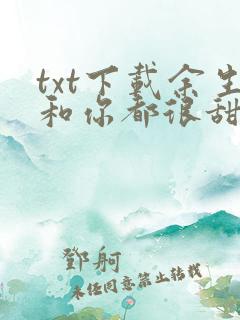 txt下载余生
和你都很甜
鄧舸
未经同意禁止转载